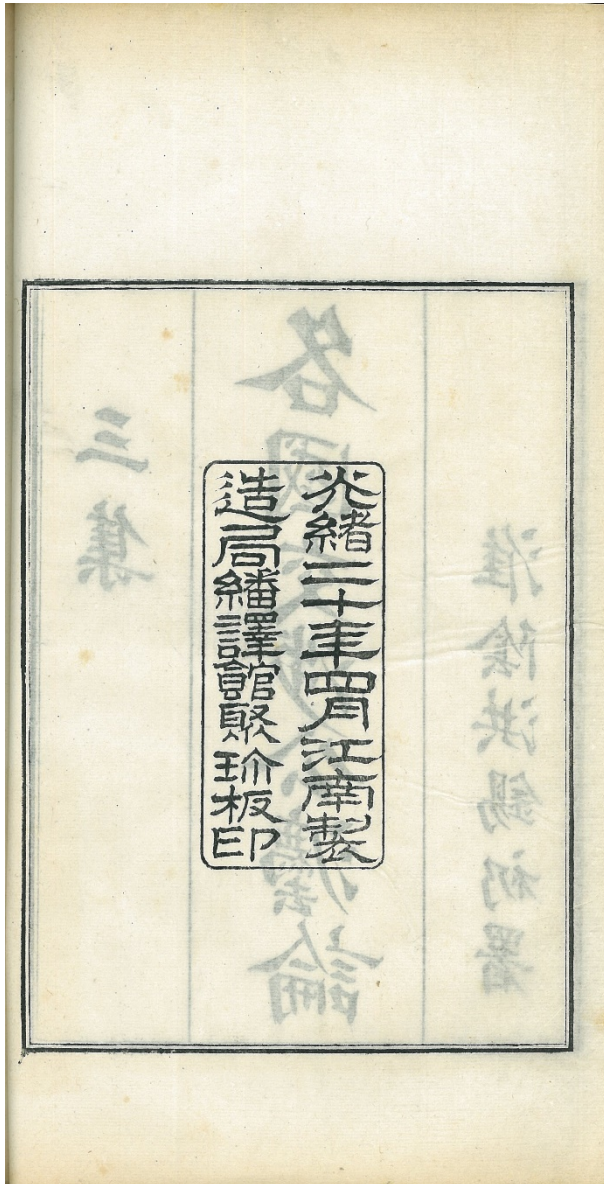 光緒三十年四月江南製
造局繙譯館聚珍板印